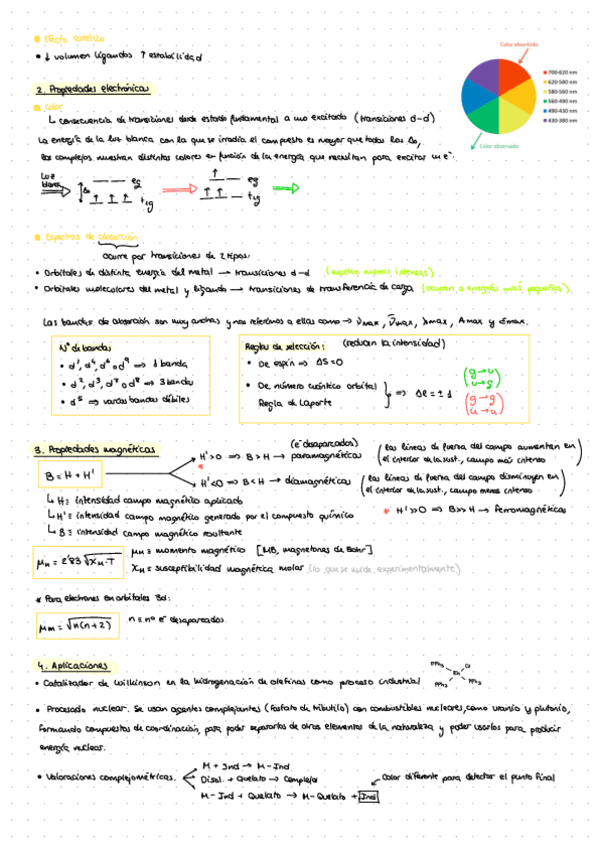 Efecto estérico
• ↓ volumen ligandos ↑ estabilidad
2. Propiedades electrónicas
Color
↳ consecuencia de transiciones desde estado fundamental a uno excitado (transiciones d-d)
La energía de la luz blanca con la que se irradia el compuesto es mayor que todos los Δo,
los complejos muestran distintos colores en función de la energía que necesitan para excitar un e⁻.
Color absorbido
700-620 nm
620-580 nm
580-560 nm
560-490 nm
490-430 nm
430-380 nm
Color observado
Luz blanca
Δo
eg
t₂g
eg
t₂g
Espectros de absorción
Ocurre por transiciones de 2 tipos:
• Orbitales de distinta energía del metal → transiciones d-d (bandas menos intensas)
• Orbitales moleculares del metal y ligando → transiciones de transferencia de carga (ocurren a energías más pequeñas).
Las bandas de absorción son muy anchas y nos referimos a ellas como → νmax, ν̄max, λmax, Amax y Emax.
Nº de bandas
• d¹, d⁴, d⁶ o d⁹ ⇒ 1 banda
• d², d³, d⁷ o d⁸ ⇒ 3 bandas
• d⁵ ⇒ varias bandas débiles
Reglas de selección: (reducen la intensidad)
• De espín ⇒ ΔS=0
• De número cuántico orbital
Regla de Laporte
⇒ Δl = ±1
(g→u
u→g)
(g→g
u→u)
3. Propiedades magnéticas
B = H + H'
H'>0 ⇒ B>H → paramagnéticas (e⁻ desaparcados)
(Las líneas de fuerza del campo aumentan en
el interior de la sust., campo más intenso)
*
H'<0 ⇒ B<H → diamagnéticas
(Las líneas de fuerza del campo disminuyen en
el interior de la sust., campo menos intenso)
* H'>>0 ⇒ B>>H → Ferromagnéticas
↳ H ≡ intensidad campo magnético aplicado
↳ H' ≡ intensidad campo magnético generado por el compuesto químico
↳ B ≡ intensidad campo magnético resultante
μm = 2'83 √Xm·T
μm ≡ momento magnético [MB, magnetones de Bohr]
Xm ≡ susceptibilidad magnética molar (lo que se mide experimentalmente)
* Para electrones en orbitales 3d:
μm = √n(n+2)
n ≡ nº e⁻ desaparcados
4. Aplicaciones
• Catalizador de Wilkinson en la hidrogenación de olefinas como proceso industrial
PPh₃
Cl
Rh
PPh₃
PPh₃
• Procesado nuclear. Se usan agentes complejantes (fosfato de tributilo) con combustibles nucleares, como uranio y plutonio,
formando compuestos de coordinación, para poder separarlos de otros elementos de la naturaleza y poder usarlos para producir
energía nuclear.
• Valoraciones complejométricas.
M + Ind → M-Ind
Disol. + Quelato → Complejo
M-Ind + Quelato → M-Quelato + Ind
Color diferente para detectar el punto final